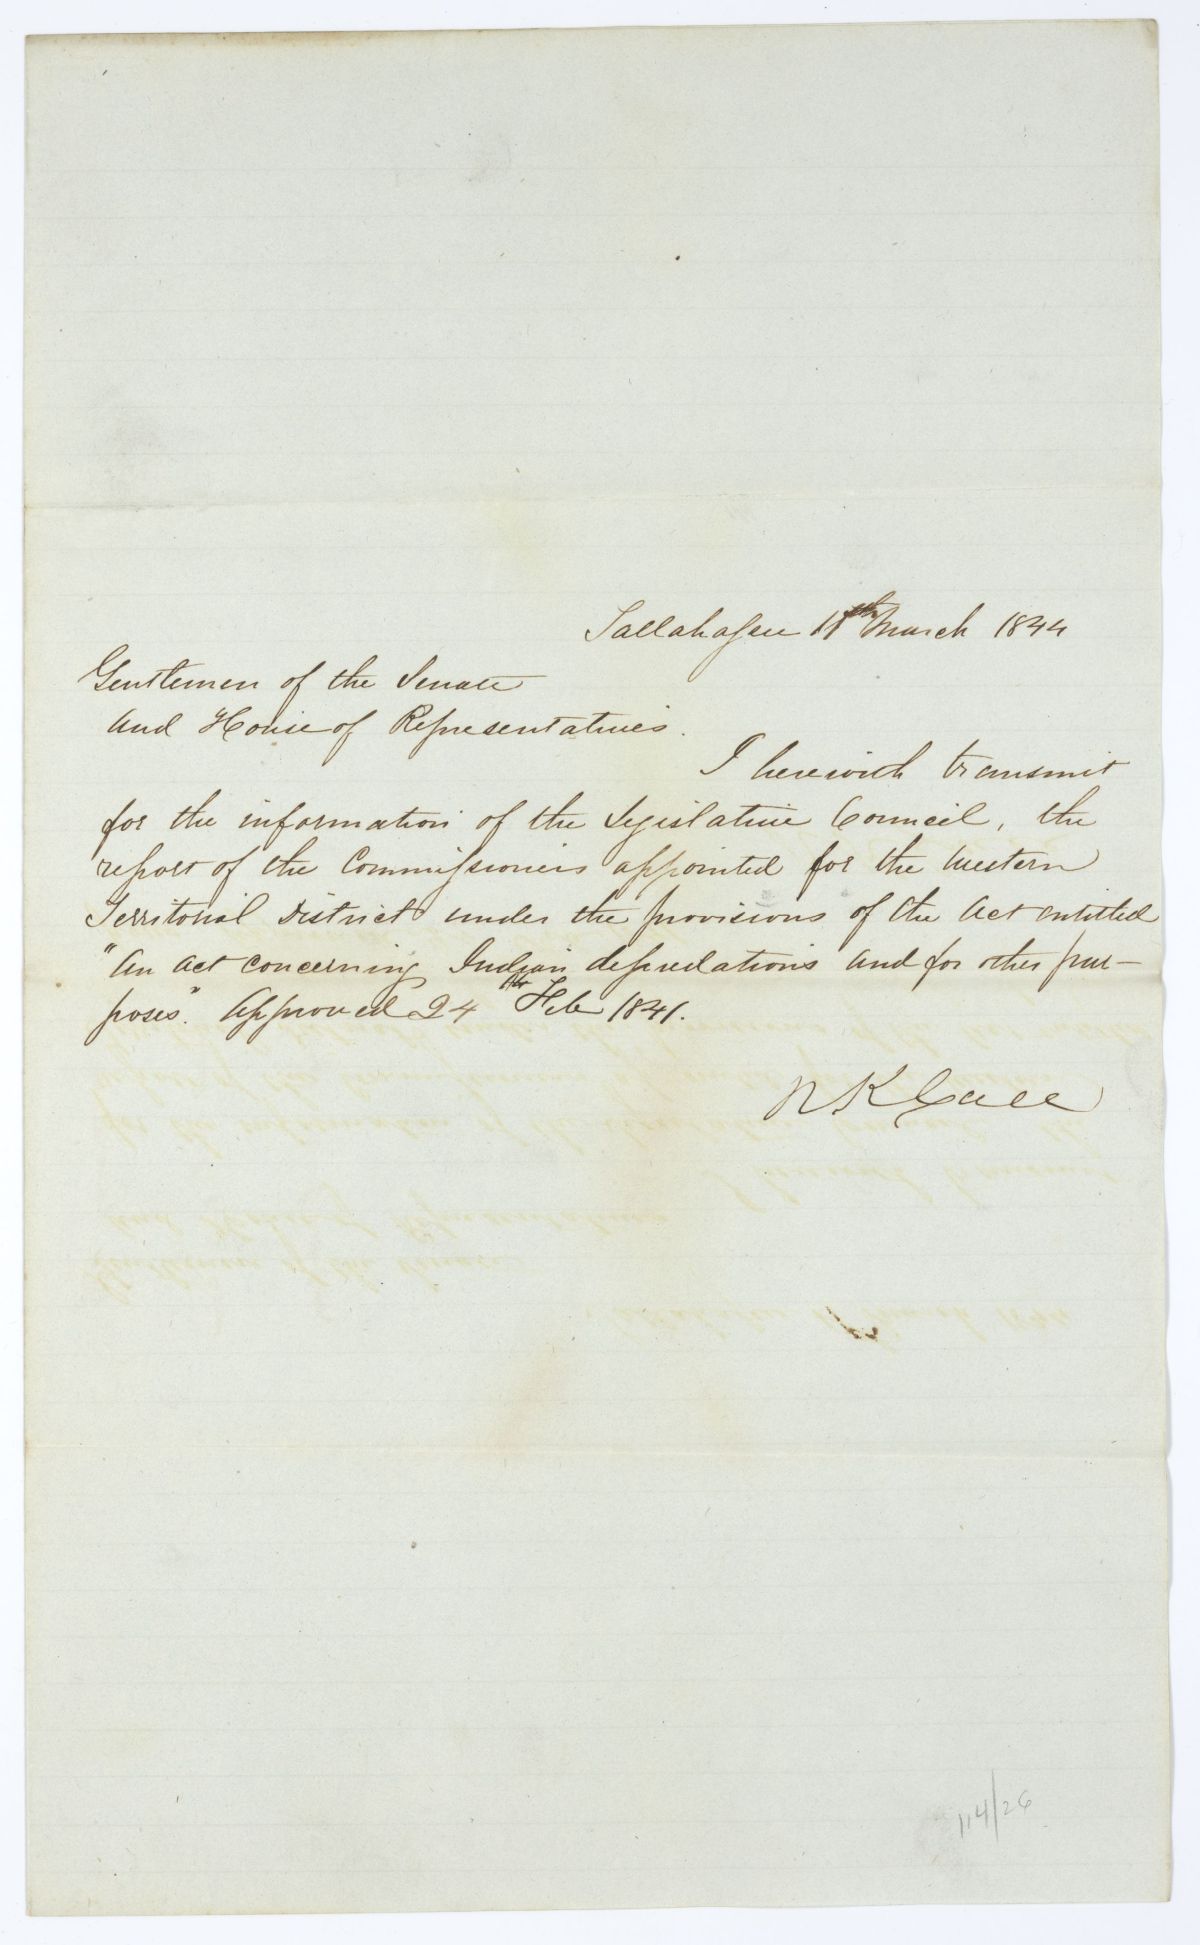 Tallahassee 11th March 1844
Gentlemen of the Senate
and House of Representatives.
I herewith transmit
for the information of the Legislative Council, the
report of the Commissioners appointed for the Western
Territorial District under the provisions of the Act entitled
"An act concerning Indian depredations and for other pur-
poses". Approved 24th Feb 1841.
R K Call
114/26